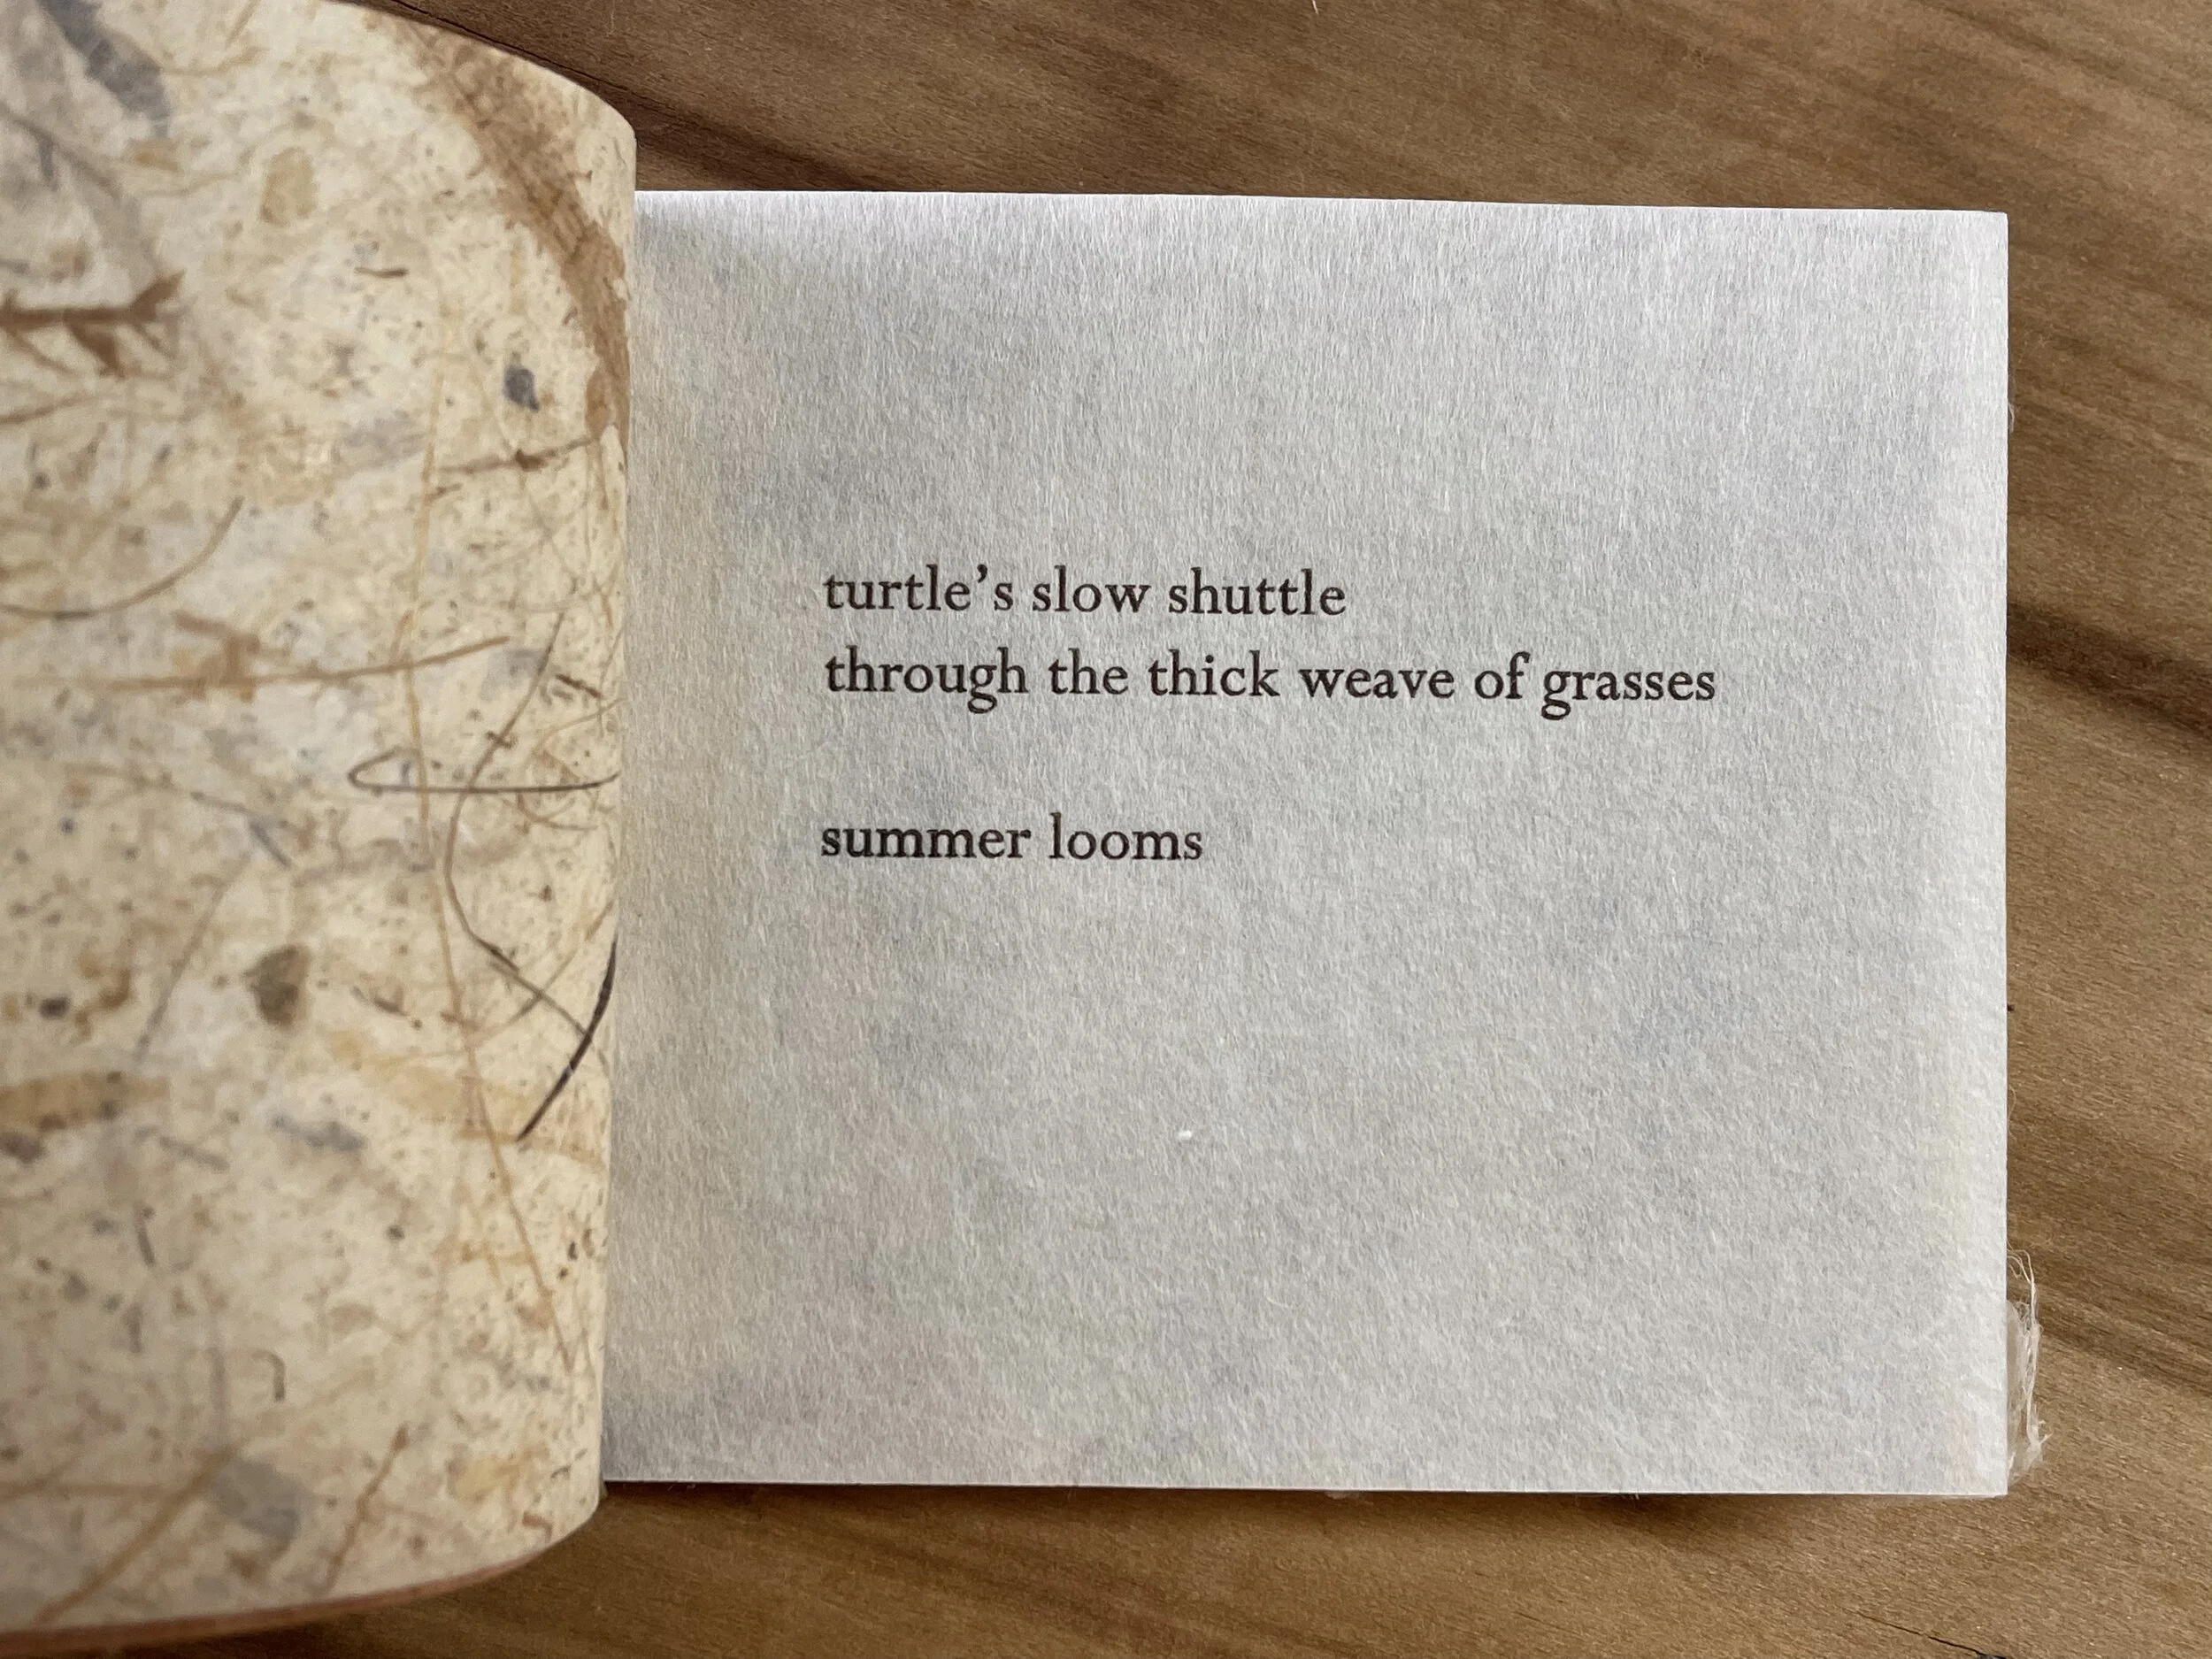 turtle’s slow shuttle
through the thick weave of grasses
summer looms